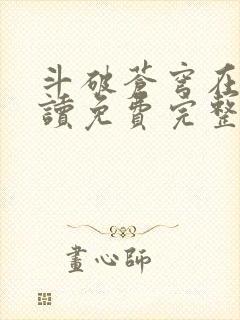 斗破蒼穹在
讀免費完整
畫心師